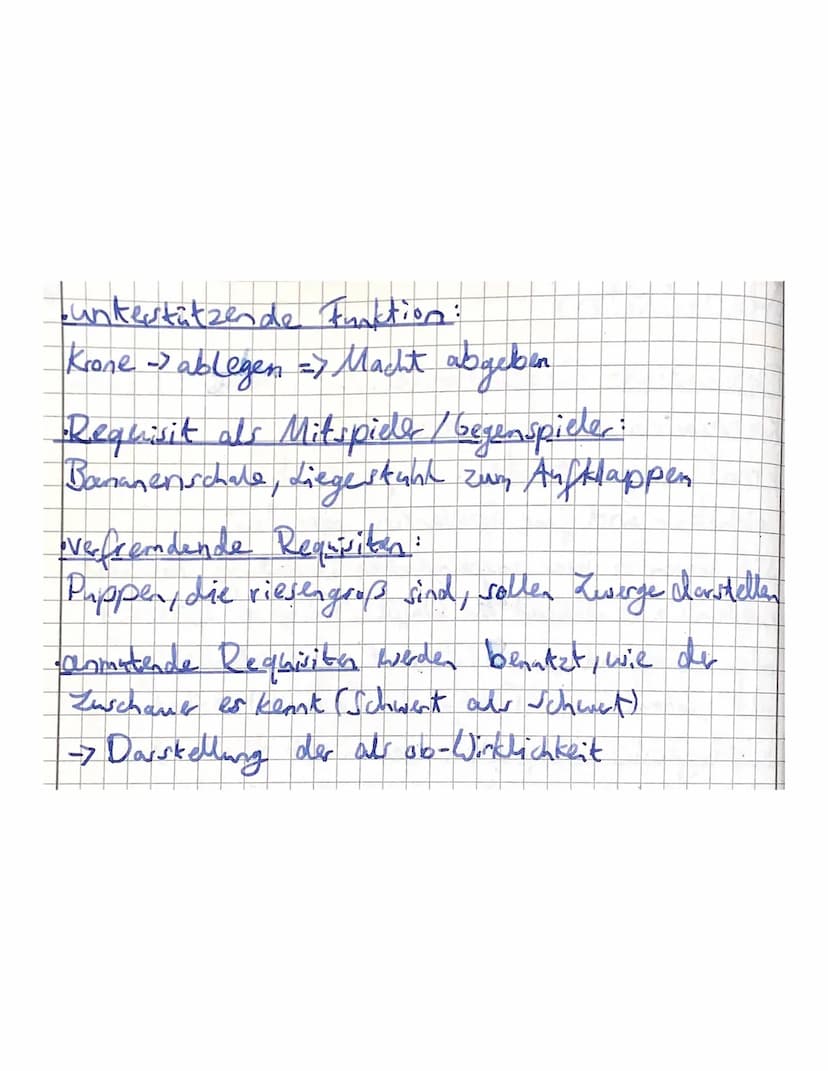 ·unterstützende Funktion:
Krone -> ablegen => Macht abgeben
·Requisit als Mitspieler/Gegenspieler:
Bananenschale, Liegestuhl zum Aufklappen
·verfremdende Requisiten:
Puppen, die riesengroß sind, sollen Zwerge darstellen
·anmutende Requisiten werden benutzt, wie der
Zuschauer es kennt (Schwert als Schwert)
-> Darstellung der als ob-Wirklichkeit